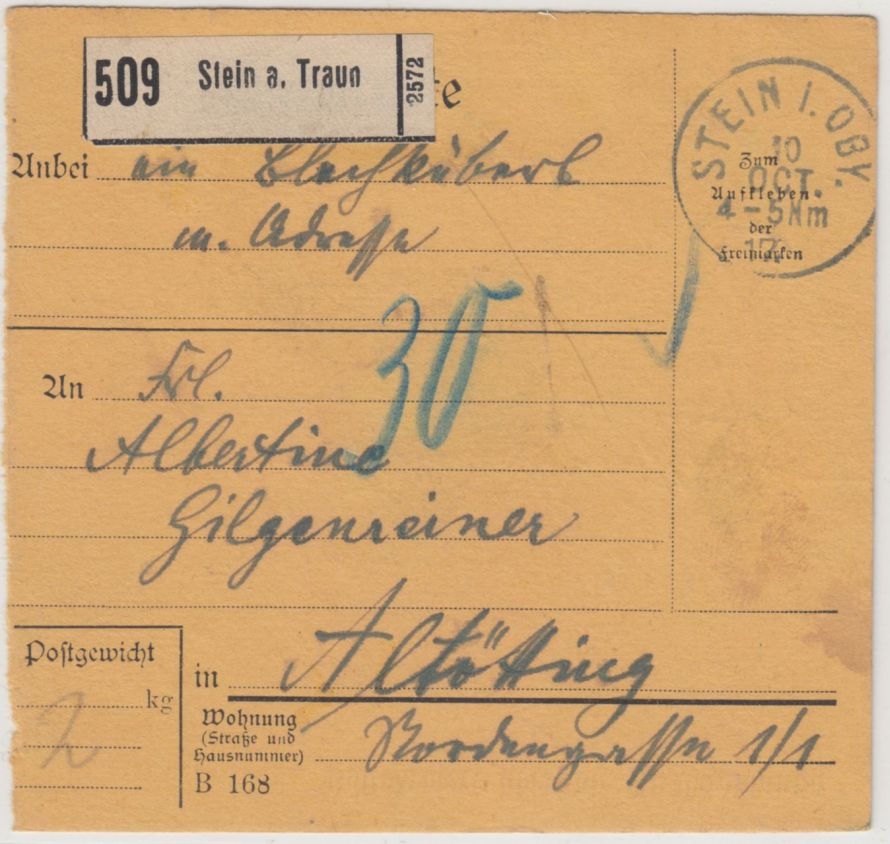 509 Stein a. Traun 2572
te
Anbei ein Blechküberl
m. Adresse
STEIN I. OBY.
10
OCT.
4-5Nm
17
Zum
Aufkleben
der
Freimarken
30
An Frl.
Albertine
Gilgenreiner
Postgewicht
2 kg
in Altötting
Wohnung
(Straße und
Hausnummer)
1/1
B 168